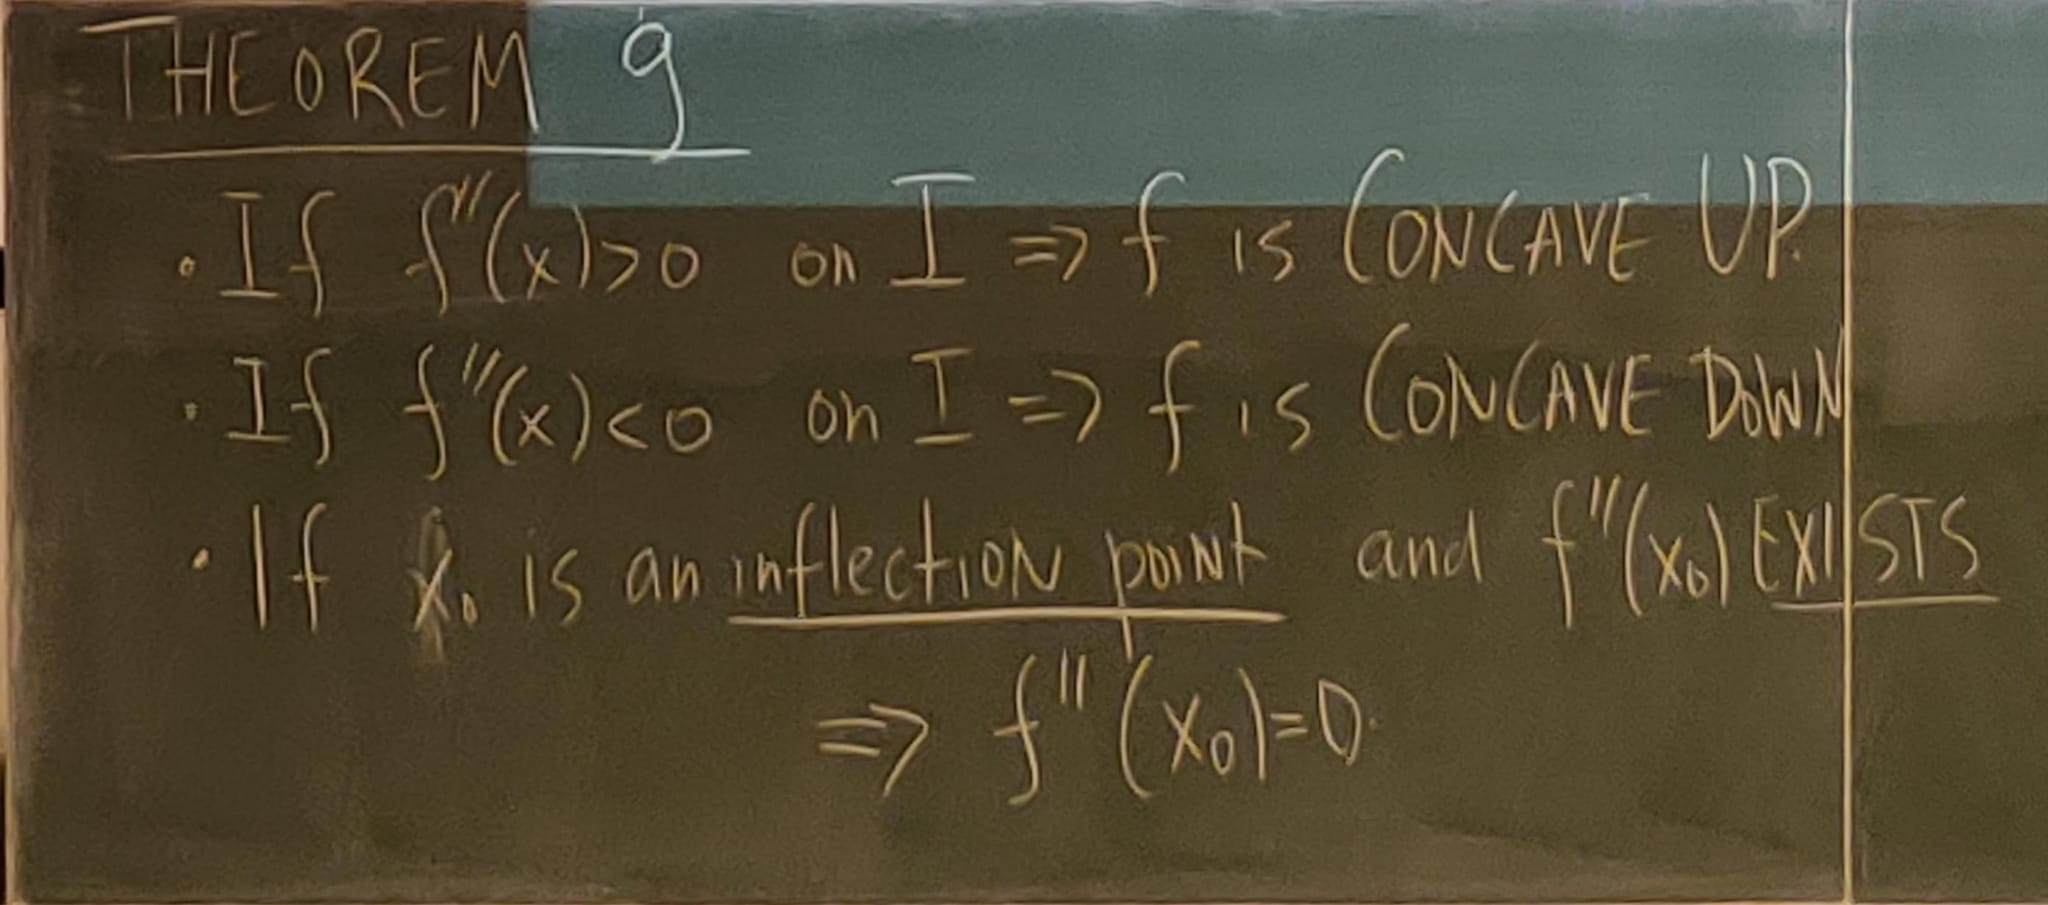 THEOREM 9
• If f''(x)>0 on I => f is CONCAVE UP.
• If f''(x)<0 on I => f is CONCAVE DOWN
• If x₀ is an inflection point and f''(x₀) EXISTS
=> f''(x₀)=0.